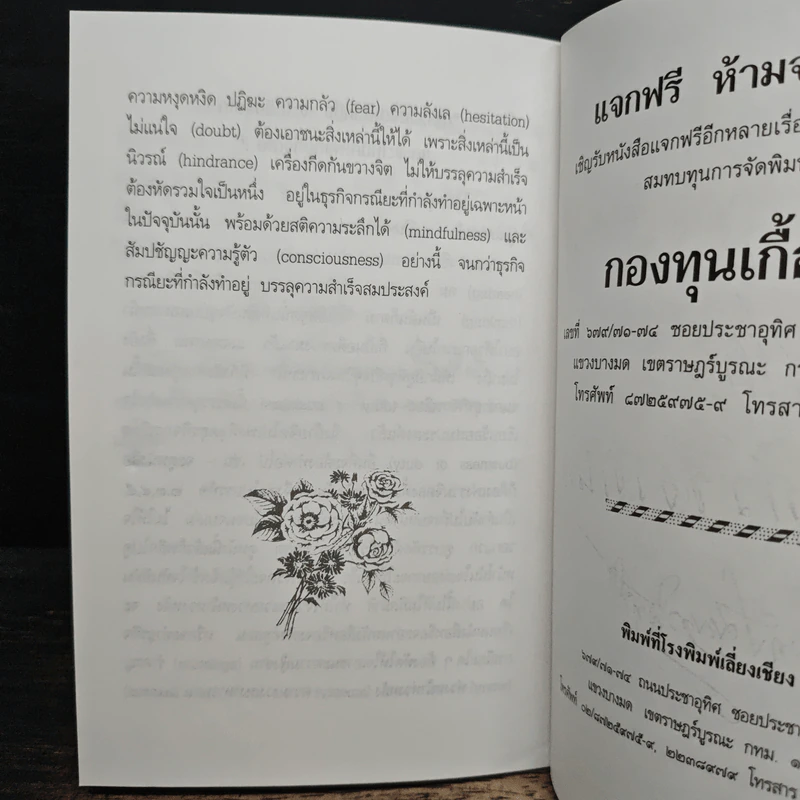 ความหงุดหงิด ปฏิฆะ ความกลัว (fear) ความลังเล (hesitation)
ไม่แน่ใจ (doubt) ต้องเอาชนะสิ่งเหล่านี้ให้ได้ เพราะสิ่งเหล่านี้เป็น
นิวรณ์ (hindrance) เครื่องกีดกันขวางจิต ไม่ให้บรรลุความสำเร็จ
ต้องหัดรวมใจเป็นหนึ่ง อยู่ในธุรกิจกรณียะที่กำลังทำอยู่เฉพาะหน้า
ในปัจจุบันนั้น พร้อมด้วยสติความระลึกได้ (mindfulness) และ
สัมปชัญญะความรู้ตัว (consciousness) อย่างนี้ จนกว่าธุรกิจ
กรณียะที่กำลังทำอยู่ บรรลุความสำเร็จสมประสงค์
แจกฟรี ห้าม
เชิญรับหนังสือแจกฟรีอีกหลายเรื่อ
สมทบทุนการจัดพิม
กองทุนเกื้อ
เลขที่ ๖๗๙/๗๑-๗๔ ซอยประชาอุทิศ
แขวงบางมด เขตราษฎร์บูรณะ ก
โทรศัพท์ ๘๗๒๕๙๗๕-๙ โทรสาร
พิมพ์ที่โรงพิมพ์เลี่ยงเชียง
๖๗๙/๗๑-๗๔ ถนนประชาอุทิศ ซอยประชา
แขวงบางมด เขตราษฎร์บูรณะ กทม. ๑
โทรศัพท์ ๐๒/๘๗๒๕๙๗๕-๙, ๒๒๓๘๙๗๙ โทรสาร